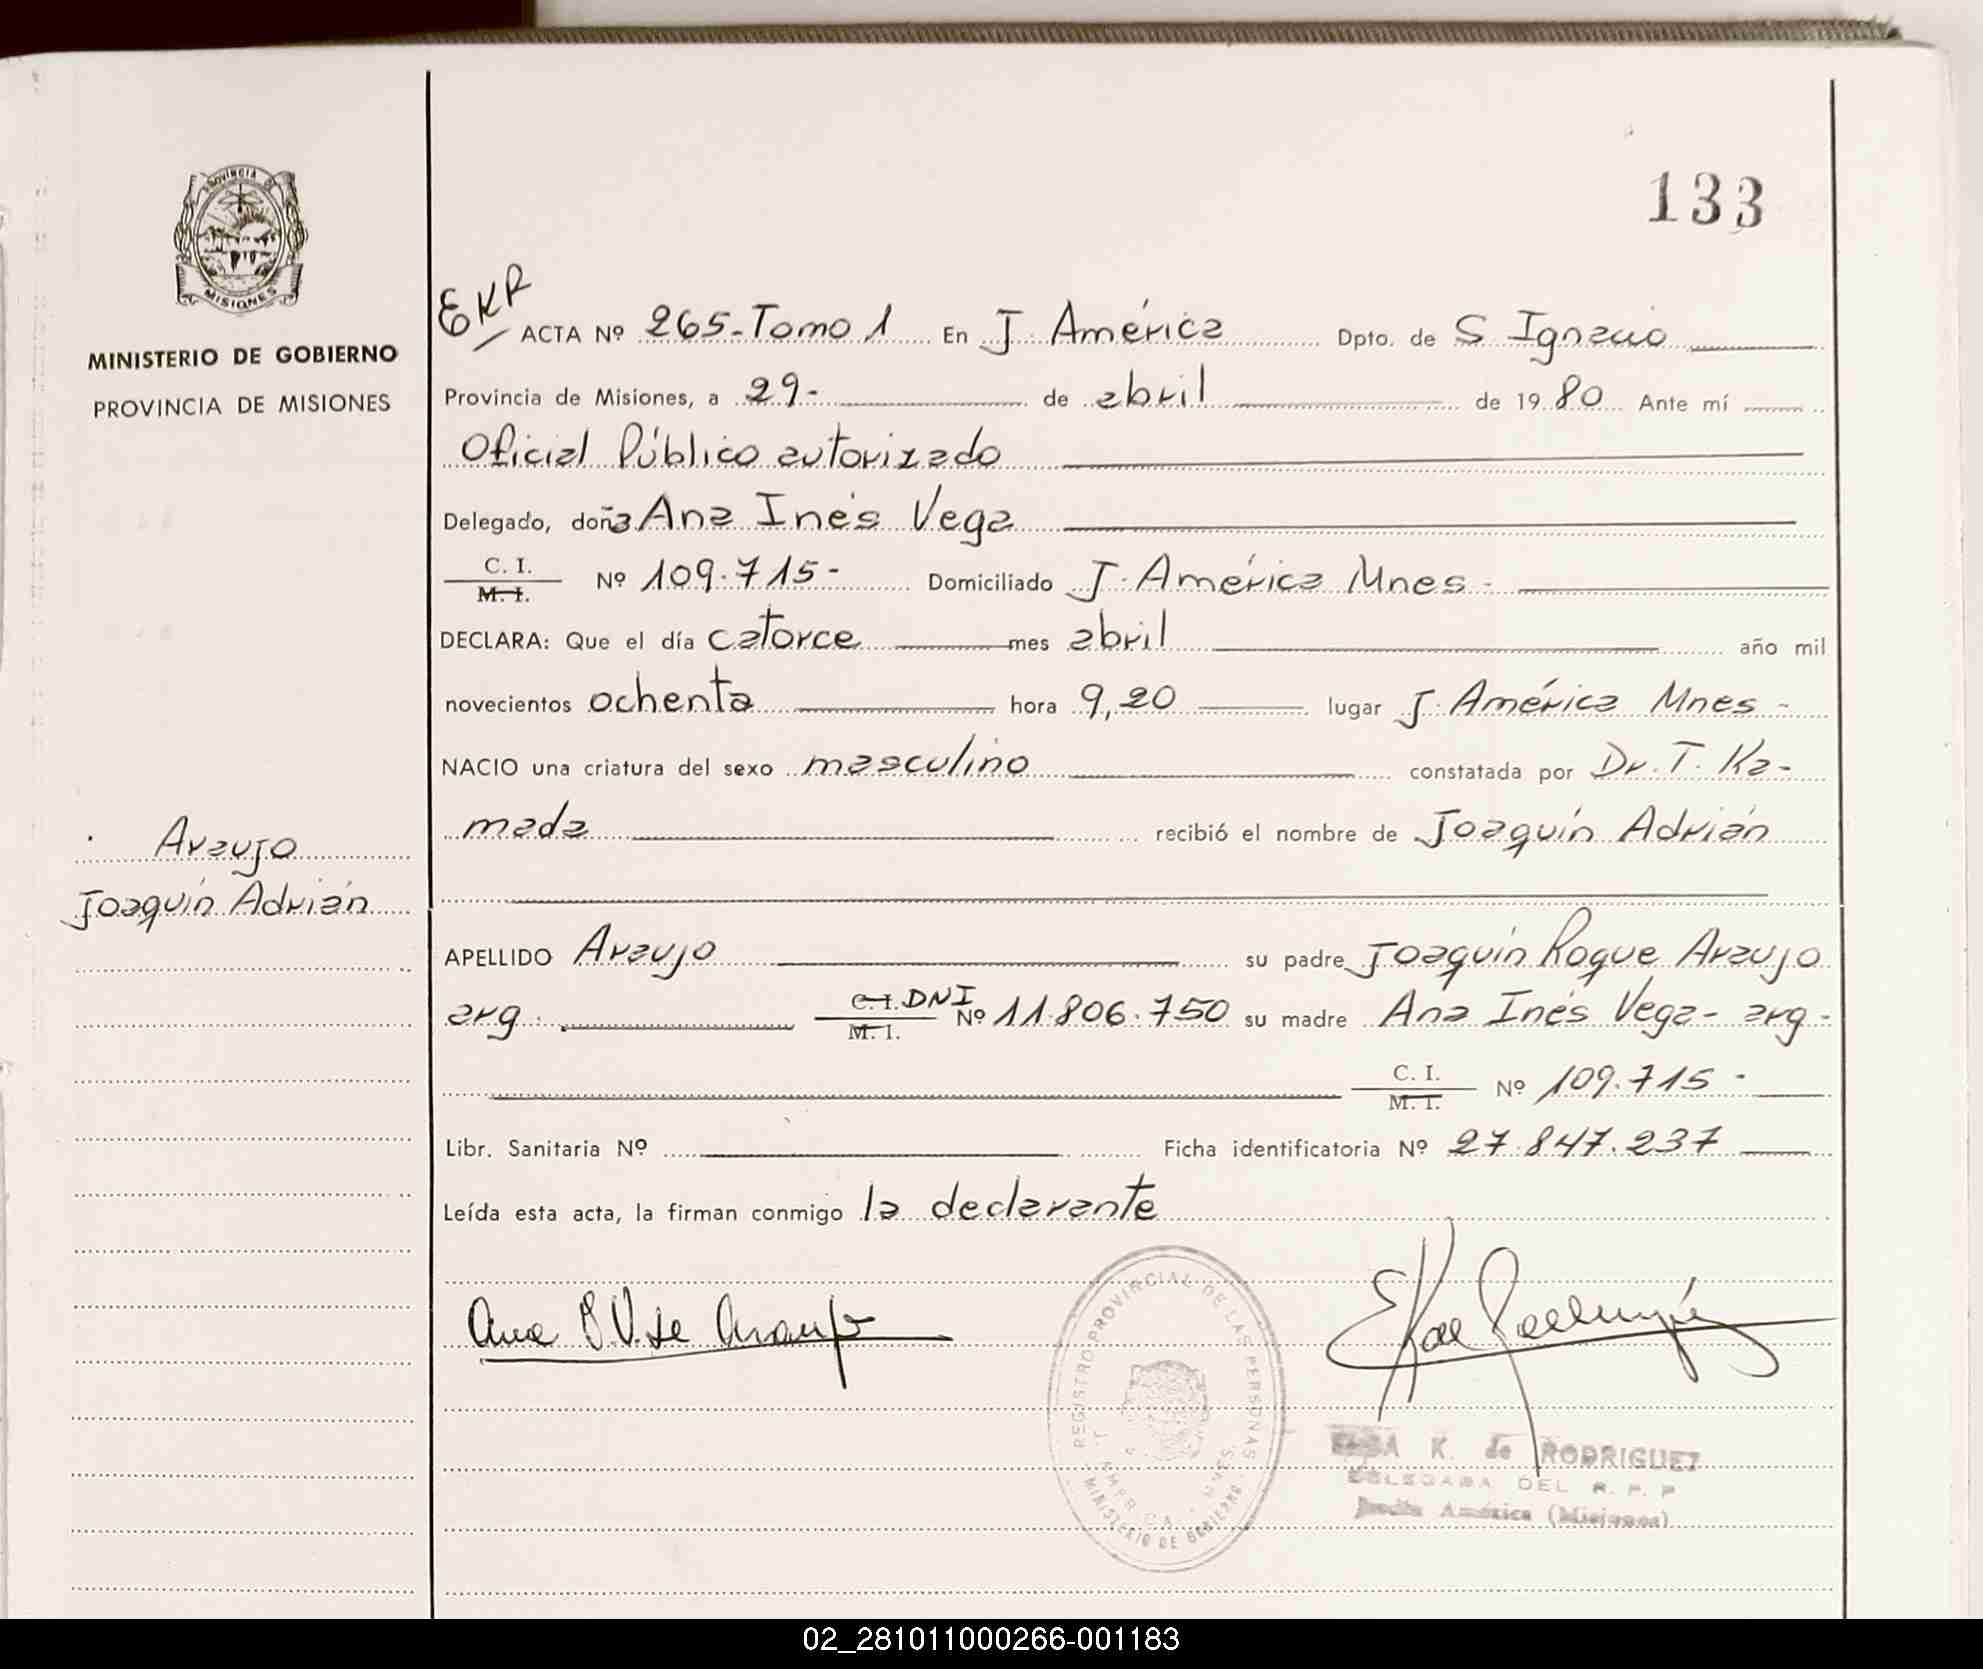 133
PROVINCIA DE
MISIONES
MINISTERIO DE GOBIERNO
PROVINCIA DE MISIONES
EKR
ACTA Nº 265-Tomo 1 En J. América Dpto. de S Ignacio
Provincia de Misiones, a 29- de abril de 1980 Ante mí
Oficial Público autorizado
Delegado, doña Ana Inés Vega
C. I.
M. I. Nº 109.715- Domiciliado J. América Mnes -
DECLARA: Que el día catorce mes abril año mil
novecientos ochenta hora 9,20 lugar J. América Mnes -
NACIO una criatura del sexo masculino constatada por Dr. T. Ka-
mada recibió el nombre de Joaquín Adrián
Araujo
Joaquín Adrián
APELLIDO Araujo su padre Joaquín Roque Araujo
arg. C. I. DNI
M. I. Nº 11.806.750 su madre Ana Inés Vega- arg -
C. I.
M. I. Nº 109.715 -
Libr. Sanitaria Nº Ficha identificatoria Nº 27.847.237
Leída esta acta, la firman conmigo la declarante
Ana I. V. de Araujo
REGISTRO PROVINCIAL DE LAS PERSONAS
MINISTERIO DE GOBIERNO
K. de RODRIGUEZ
DELEGADA DEL R. P. P
América (Misiones)
02_281011000266-001183